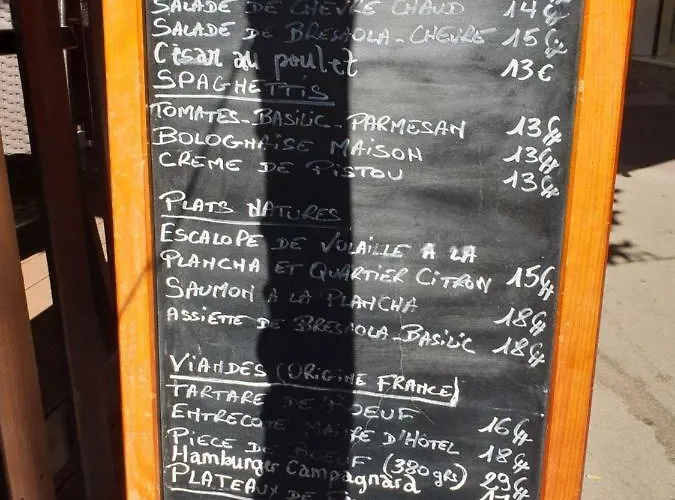 SALADE DE CHÈVRE CHAUD 14€
SALADE DE BRESAOLA-CHÈVRE 15€
César au poulet 13€
SPAGHETTIS
TOMATES-BASILIC-PARMESAN 13€
BOLOGNAISE MAISON 13€
CREME DE PISTOU 13€
PLATS NATURES
ESCALOPE DE VOLAILLE A LA
PLANCHA ET QUARTIER CITRON 15€
SAUMON A LA PLANCHA 18€
ASSIETTE DE BRESAOLA-BASILIC 18€
VIANDES (ORIGINE FRANCE)
TARTARE DE BOEUF 16€
ENTRECOTE MAITRE D'HÔTEL 18€
PIECE DE BOEUF (380 grs) 29€
Hamburger Campagnard
PLATEAUX DE